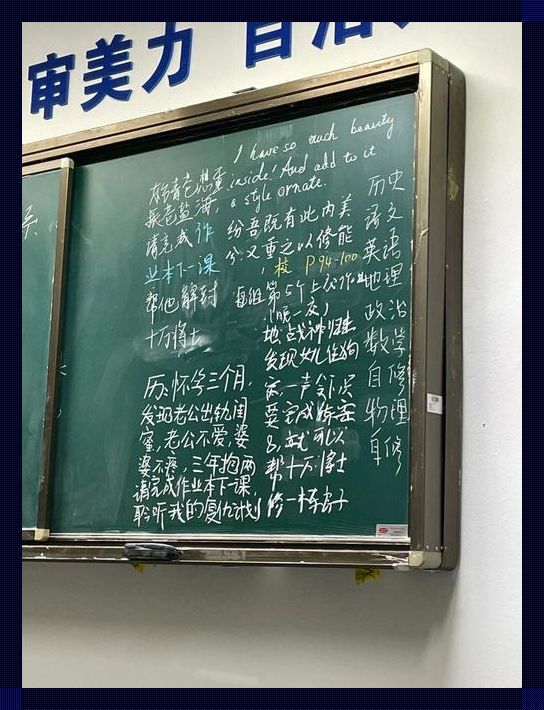 审美力
I have so much beauty
inside! And add to it
a style ornate.
纷吾既有此内美
兮又重之以修能
校 P94-100
请完成作
业本下一课
帮他解封
十万将士
每组第5个上交作业
地:战神归来
发现女儿住狗
窝,一声令下
要完成练案
8,就可以
帮十万将士
修一栋房子
历:怀孕三个月,
发现老公出轨闺
蜜,老公不爱,婆
婆不疼,三年抱两
请完成作业本下一课,
聆听我的复仇计划
历史
语文
英语
地理
政治
数学
自修
物理
自修